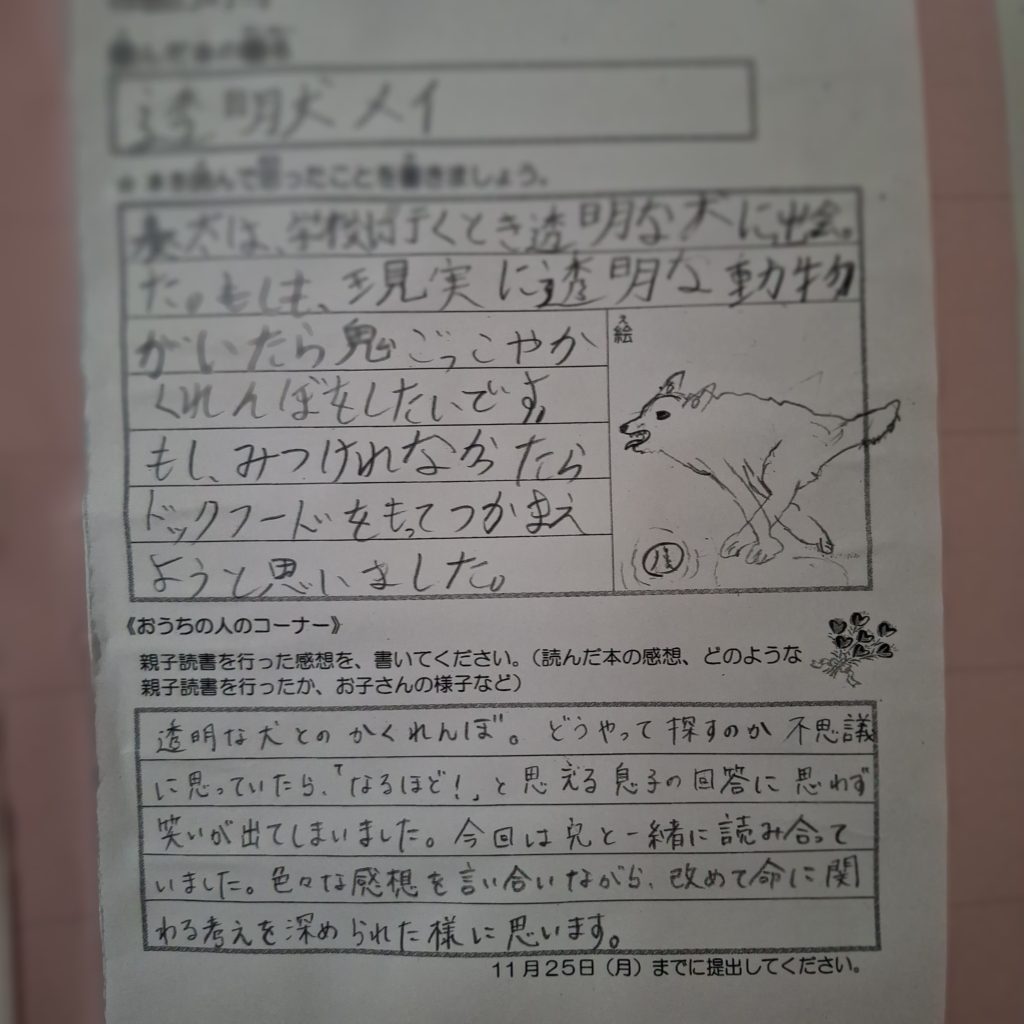 透明犬メイ
犬は、学校に行くとき透明な犬に出会っ
た。もしも、現実に透明な動物
がいたら鬼ごっこやか
くれんぼをしたいです。
もし、みつけれなかったら
ドックフードをもってつかまえ
ようと思いました。
絵
《おうちの人のコーナー》
親子読書を行った感想を、書いてください。（読んだ本の感想、どのような
親子読書を行ったか、お子さんの様子など）
透明な犬とのかくれんぼ。どうやって探すのか不思議
に思っていたら、「なるほど！」と思える息子の回答に思わず
笑いが出てしまいました。今回は兄と一緒に読み合って
いました。色々な感想を言い合いながら、改めて命に関
わる考えを深められた様に思います。
11月25日（月）までに提出してください。